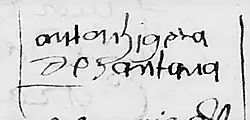 antonhigera
de santana